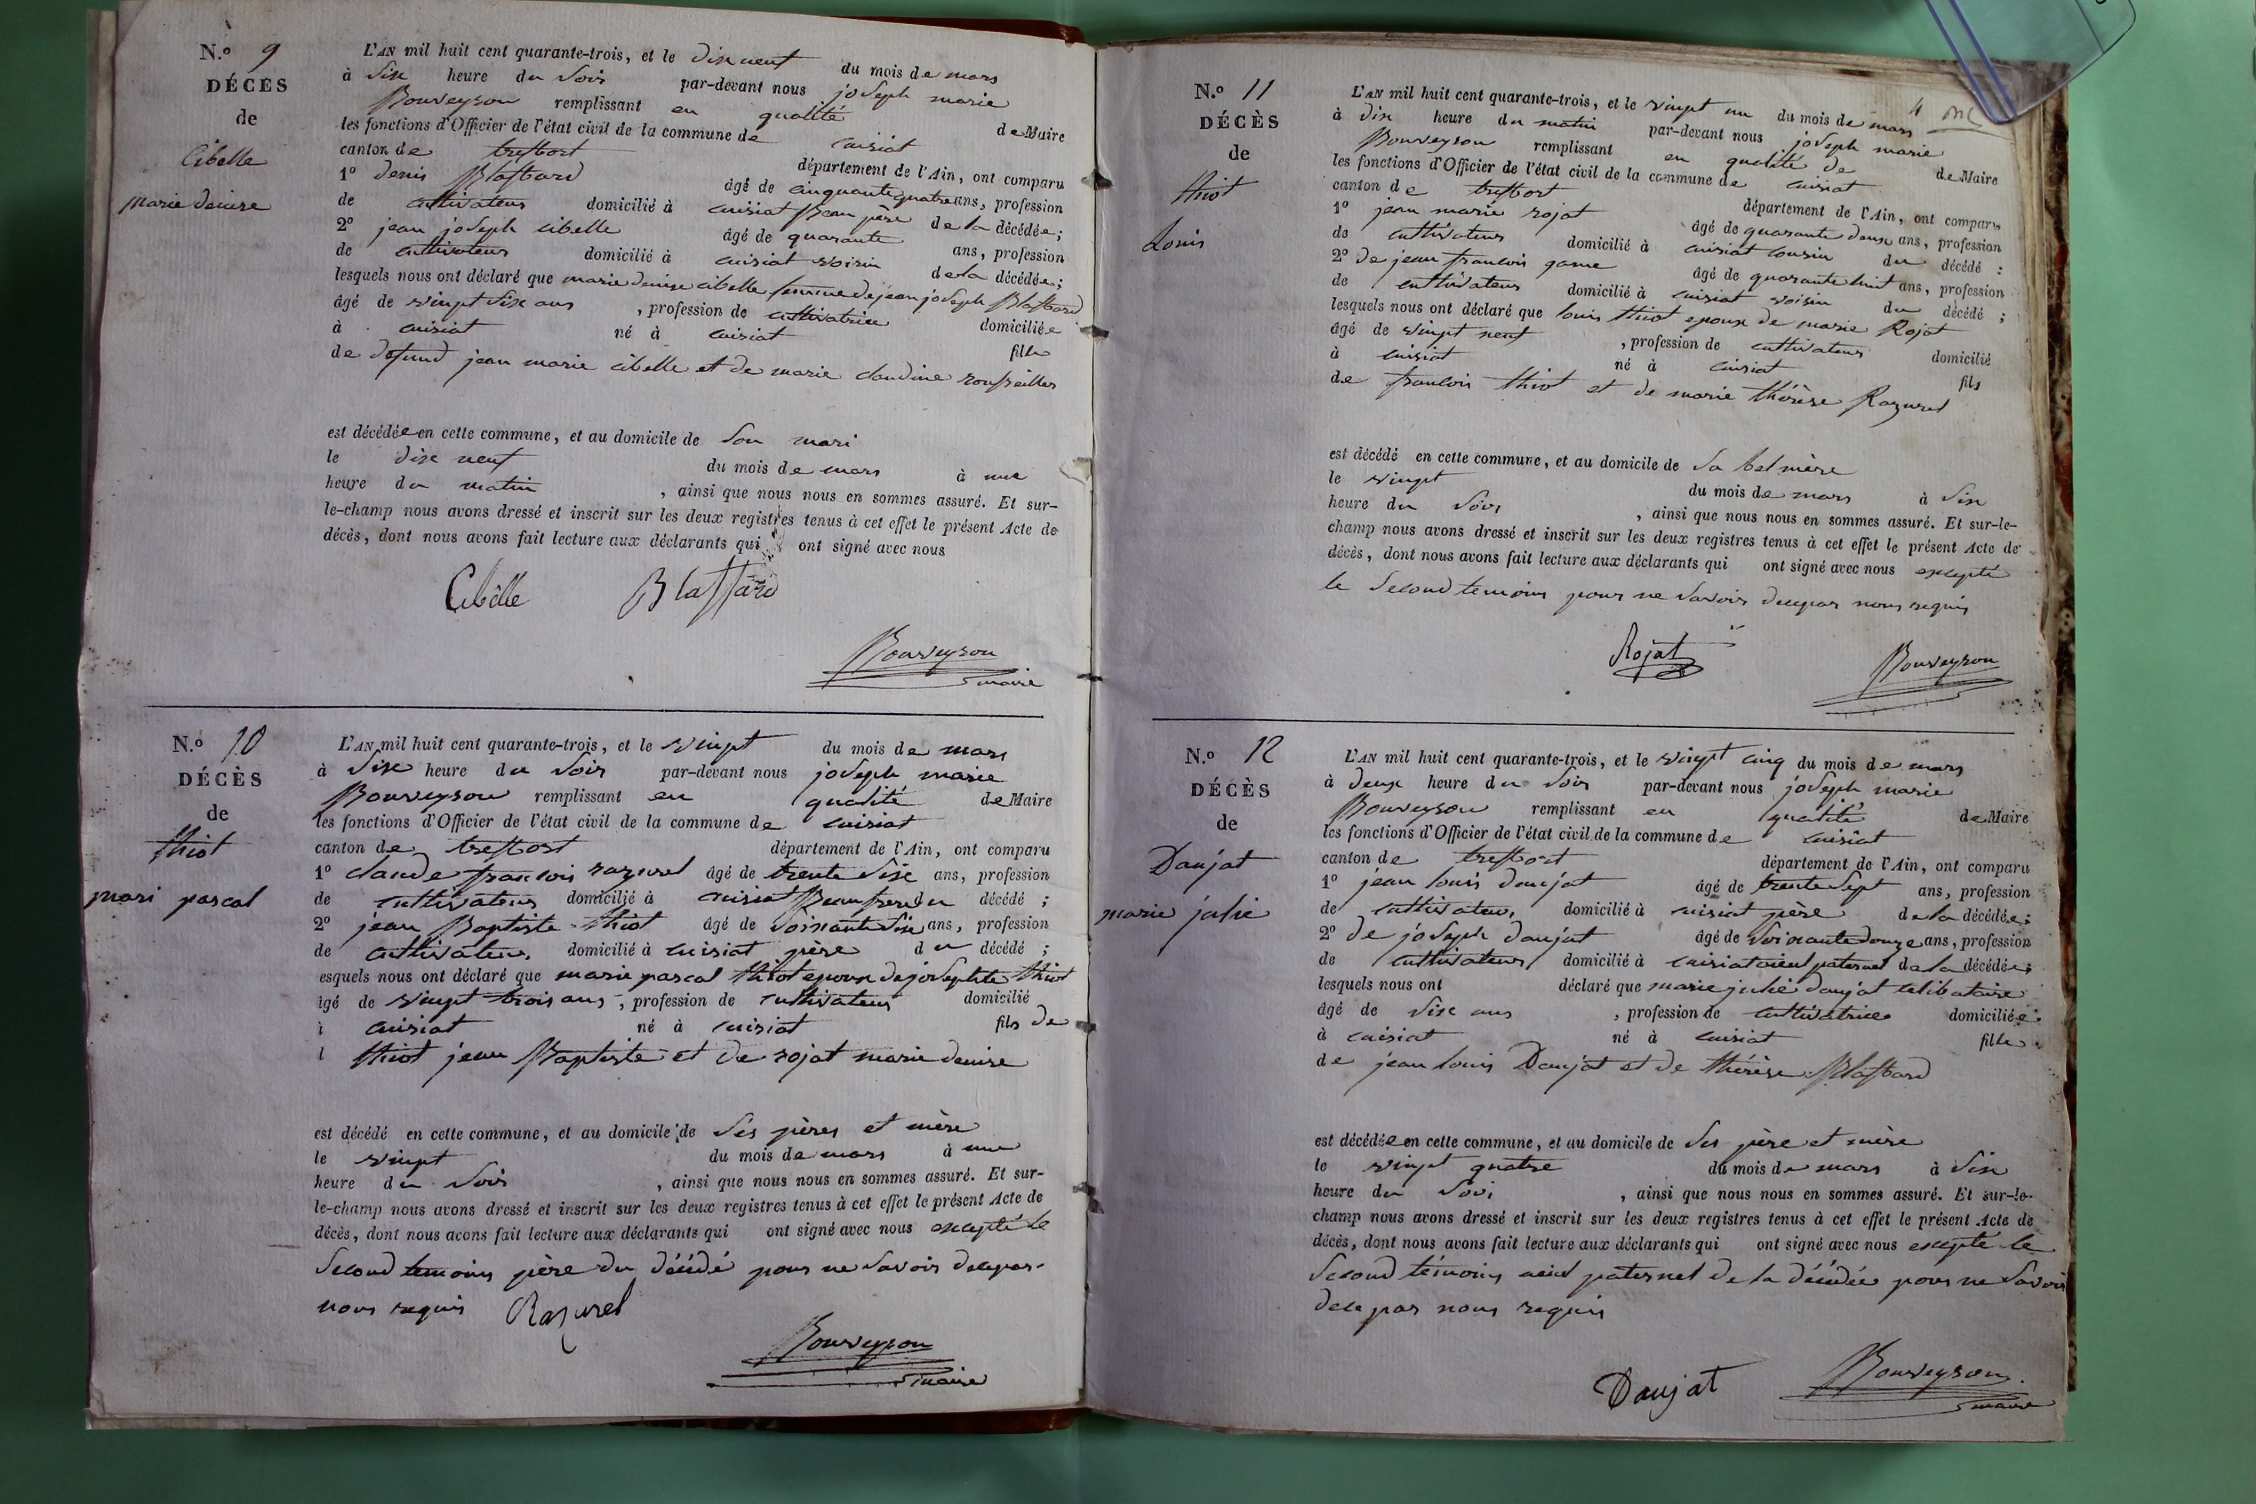 N.º 9
DÉCÈS
de
Cibelle
marie denise
L'AN mil huit cent quarante-trois, et le dix neuf du mois de mars
à six heure du soir par-devant nous joseph marie
Bouveyron remplissant en qualité de Maire
les fonctions d'Officier de l'état civil de la commune de cuisiat
canton de treffort département de l'Ain, ont comparu
1º denis Blaffard âgé de cinquante quatre ans, profession
de cultivateur domicilié à cuisiat Beau père de la décédée;
2º jean joseph cibelle âgé de quarante ans, profession
de cultivateur domicilié à cuisiat voisin de la décédée;
lesquels nous ont déclaré que marie denise cibelle femme de jean joseph Blaffard
âgé de vingt six ans, profession de cultivatrice domiciliée
à cuisiat né à cuisiat fille
de defund jean marie cibelle et de marie claudine
est décédée en cette commune, et au domicile de son mari
le dix neuf du mois de mars à une
heure du matin, ainsi que nous nous en sommes assuré. Et sur-
le-champ nous avons dressé et inscrit sur les deux registres tenus à cet effet le présent Acte de
décès, dont nous avons fait lecture aux déclarants qui ont signé avec nous
Cibelle Blaffard
Bouveyron
maire
N.º 10
DÉCÈS
de
thiot
mari pascal
L'AN mil huit cent quarante-trois, et le vingt du mois de mars
à six heure du soir par-devant nous joseph marie
Bouveyron remplissant en qualité de Maire
les fonctions d'Officier de l'état civil de la commune de cuisiat
canton de treffort département de l'Ain, ont comparu
1º claude francois razurel âgé de trente six ans, profession
de cultivateur domicilié à cuisiat Beau frere du décédé;
2º jean Baptiste thiot âgé de soixante six ans, profession
de cultivateur domicilié à cuisiat père du décédé;
esquels nous ont déclaré que marie pascal thiot epoux de josephte thiot
âgé de vingt trois ans, profession de cultivateur domicilié
à cuisiat né à cuisiat fils de
thiot jean Baptiste et de rojat marie denise
est décédé en cette commune, et au domicile de ses pères et mère
le vingt du mois de mars à une
heure du soir, ainsi que nous nous en sommes assuré. Et sur-
le-champ nous avons dressé et inscrit sur les deux registres tenus à cet effet le présent Acte de
décès, dont nous avons fait lecture aux déclarants qui ont signé avec nous excepté le
second temoins père du décédé pour ne savoir de ce par
nous requis Razurel
Bouveyron
maire
4
N.º 11
DÉCÈS
de
thiot
Louis
L'AN mil huit cent quarante-trois, et le vingt un du mois de mars
à dix heure du matin par-devant nous joseph marie
Bouveyron remplissant en qualité de de Maire
les fonctions d'Officier de l'état civil de la commune de cuisiat
canton de treffort département de l'Ain, ont comparu
1º jean marie rojat âgé de quarante deux ans, profession
de cultivateur domicilié à cuisiat cousin du décédé:
2º de jean francois game âgé de quarante huit ans, profession
de cultivateur domicilié à cuisiat voisin du décédé;
lesquels nous ont déclaré que louis thiot epoux de marie Rojat
âgé de vingt neuf, profession de cultivateur domicilié
à cuisiat né à cuisiat fils
de francois thiot et de marie thérèse Razurel
est décédé en cette commune, et au domicile de sa bel mère
le vingt du mois de mars à six
heure du soir, ainsi que nous nous en sommes assuré. Et sur-le-
champ nous avons dressé et inscrit sur les deux registres tenus à cet effet le présent Acte de
décès, dont nous avons fait lecture aux déclarants qui ont signé avec nous excepté
le second temoins pour ne savoir de ce par nous requis
Rojat Bouveyron
N.º 12
DÉCÈS
de
Daujat
marie julie
L'AN mil huit cent quarante-trois, et le vingt cinq du mois de mars
à deux heure du soir par-devant nous joseph marie
Bouveyron remplissant en qualité de Maire
les fonctions d'Officier de l'état civil de la commune de cuisiat
canton de treffort département de l'Ain, ont comparu
1º jean louis daujat âgé de trente sept ans, profession
de cultivateur domicilié à cuisiat père de la décédée;
2º de joseph daujat âgé de soixante douze ans, profession
de cultivateur domicilié à cuisiat aieul paternel de la décédée;
lesquels nous ont déclaré que marie julie daujat celibataire
âgé de six ans, profession de cultivatrice domiciliée
à cuisiat né à cuisiat fille
de jean louis Daujat et de thérèse Blaffard
est décédée en cette commune, et au domicile de ses père et mère
le vingt quatre du mois de mars à six
heure du soir, ainsi que nous nous en sommes assuré. Et sur-le-
champ nous avons dressé et inscrit sur les deux registres tenus à cet effet le présent Acte de
décès, dont nous avons fait lecture aux déclarants qui ont signé avec nous excepté le
second témoins aieul paternel de la décédée pour ne savoir
de ce par nous requis
Daujat Bouveyron
maire